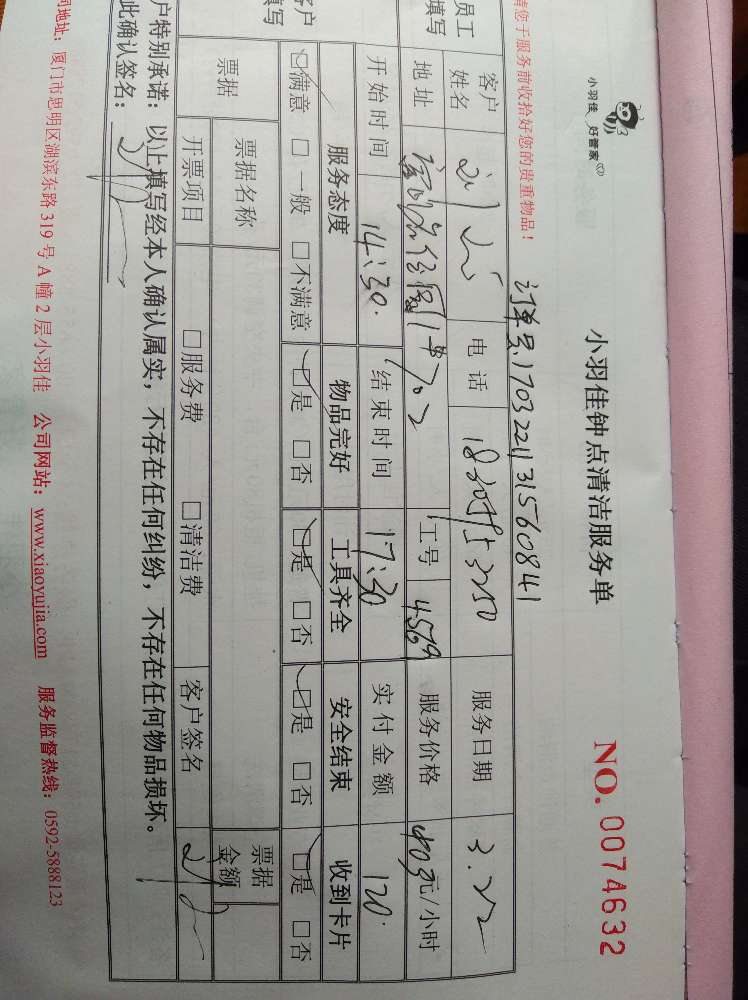 小羽佳 好管家
小羽佳钟点清洁服务单
NO. 0074632
订单号: 17032211315560841
请您于服务前收拾好您的贵重物品!
员工
填写
客户姓名 刘 电话 服务日期 3.22
地址 工号 4569 服务价格 40元/小时
开始时间 14:30. 结束时间 17:30 实付金额 120.
客户
填写
服务态度 物品完好 工具齐全 安全结束 收到卡片
☑满意 □一般 □不满意 ☑是 □否 ☑是 □否 ☑是 □否 ☑是 □否
票据 票据名称 票据金额
开票项目 □服务费 □清洁费 客户签名
户特别承诺: 以上填写经本人确认属实, 不存在任何纠纷, 不存在任何物品损坏。
此确认签名:
司地址: 厦门市思明区湖滨东路 319 号 A 幢 2 层小羽佳 公司网站: www.xiaoyujia.com 服务监督热线: 0592-5888123